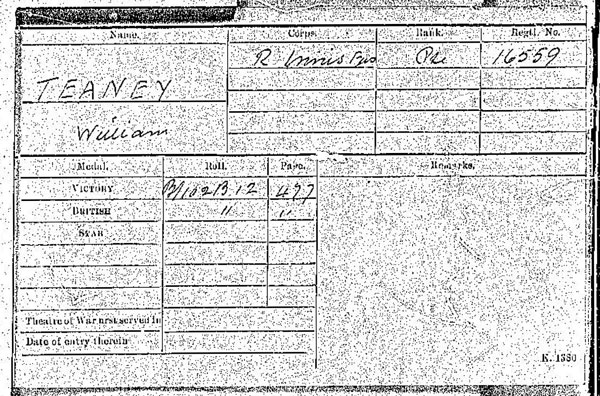 Name. Corps. Rank. Regtl. No.
TEANEY R Innis Fus Pte 16559
William
Medal. Roll. Page. Remarks.
VICTORY B/102B12 497
BRITISH " "
STAR
Theatre of War first served in
Date of entry therein
K. 1380